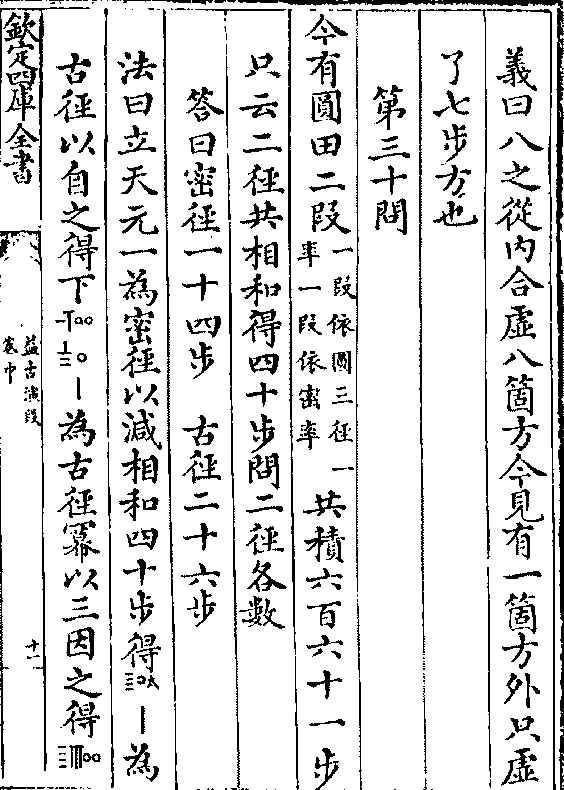 義曰八之從內合虛八箇方今見有一箇方外只虛
了七步方也
第三十問
今有圓田二段一段依圓三徑一率一段依密率共積六百六十一步
只云二徑共相和得四十步問二徑各數
答曰密徑一十四步　古徑二十六步
法曰立天元一為密徑以減相和四十步得為
古徑以自之得下為古徑冪以三因之得
欽定四庫全書
益古演段
卷中
十一